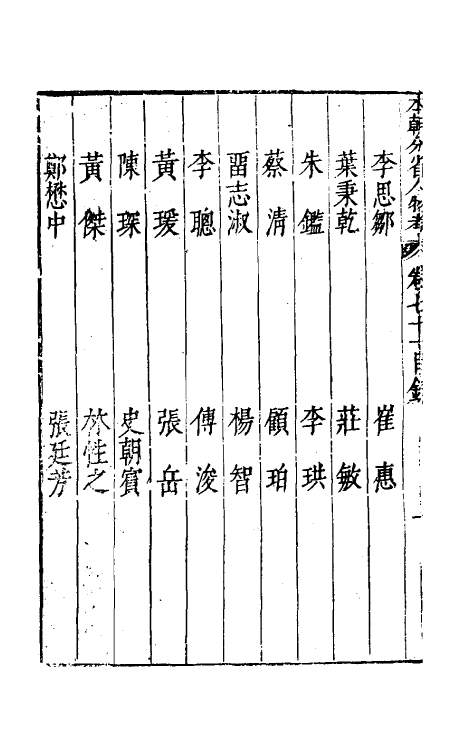 本朝分省人物考 卷七十一目録
李思鄒 崔惠
葉秉乾 莊敏
朱鑑 李珙
蔡清 顧珀
留志淑 楊智
李聰 傅浚
黃瑗 張岳
陳琛 史朝賓
黃傑 林性之
鄭懋中 張廷芳